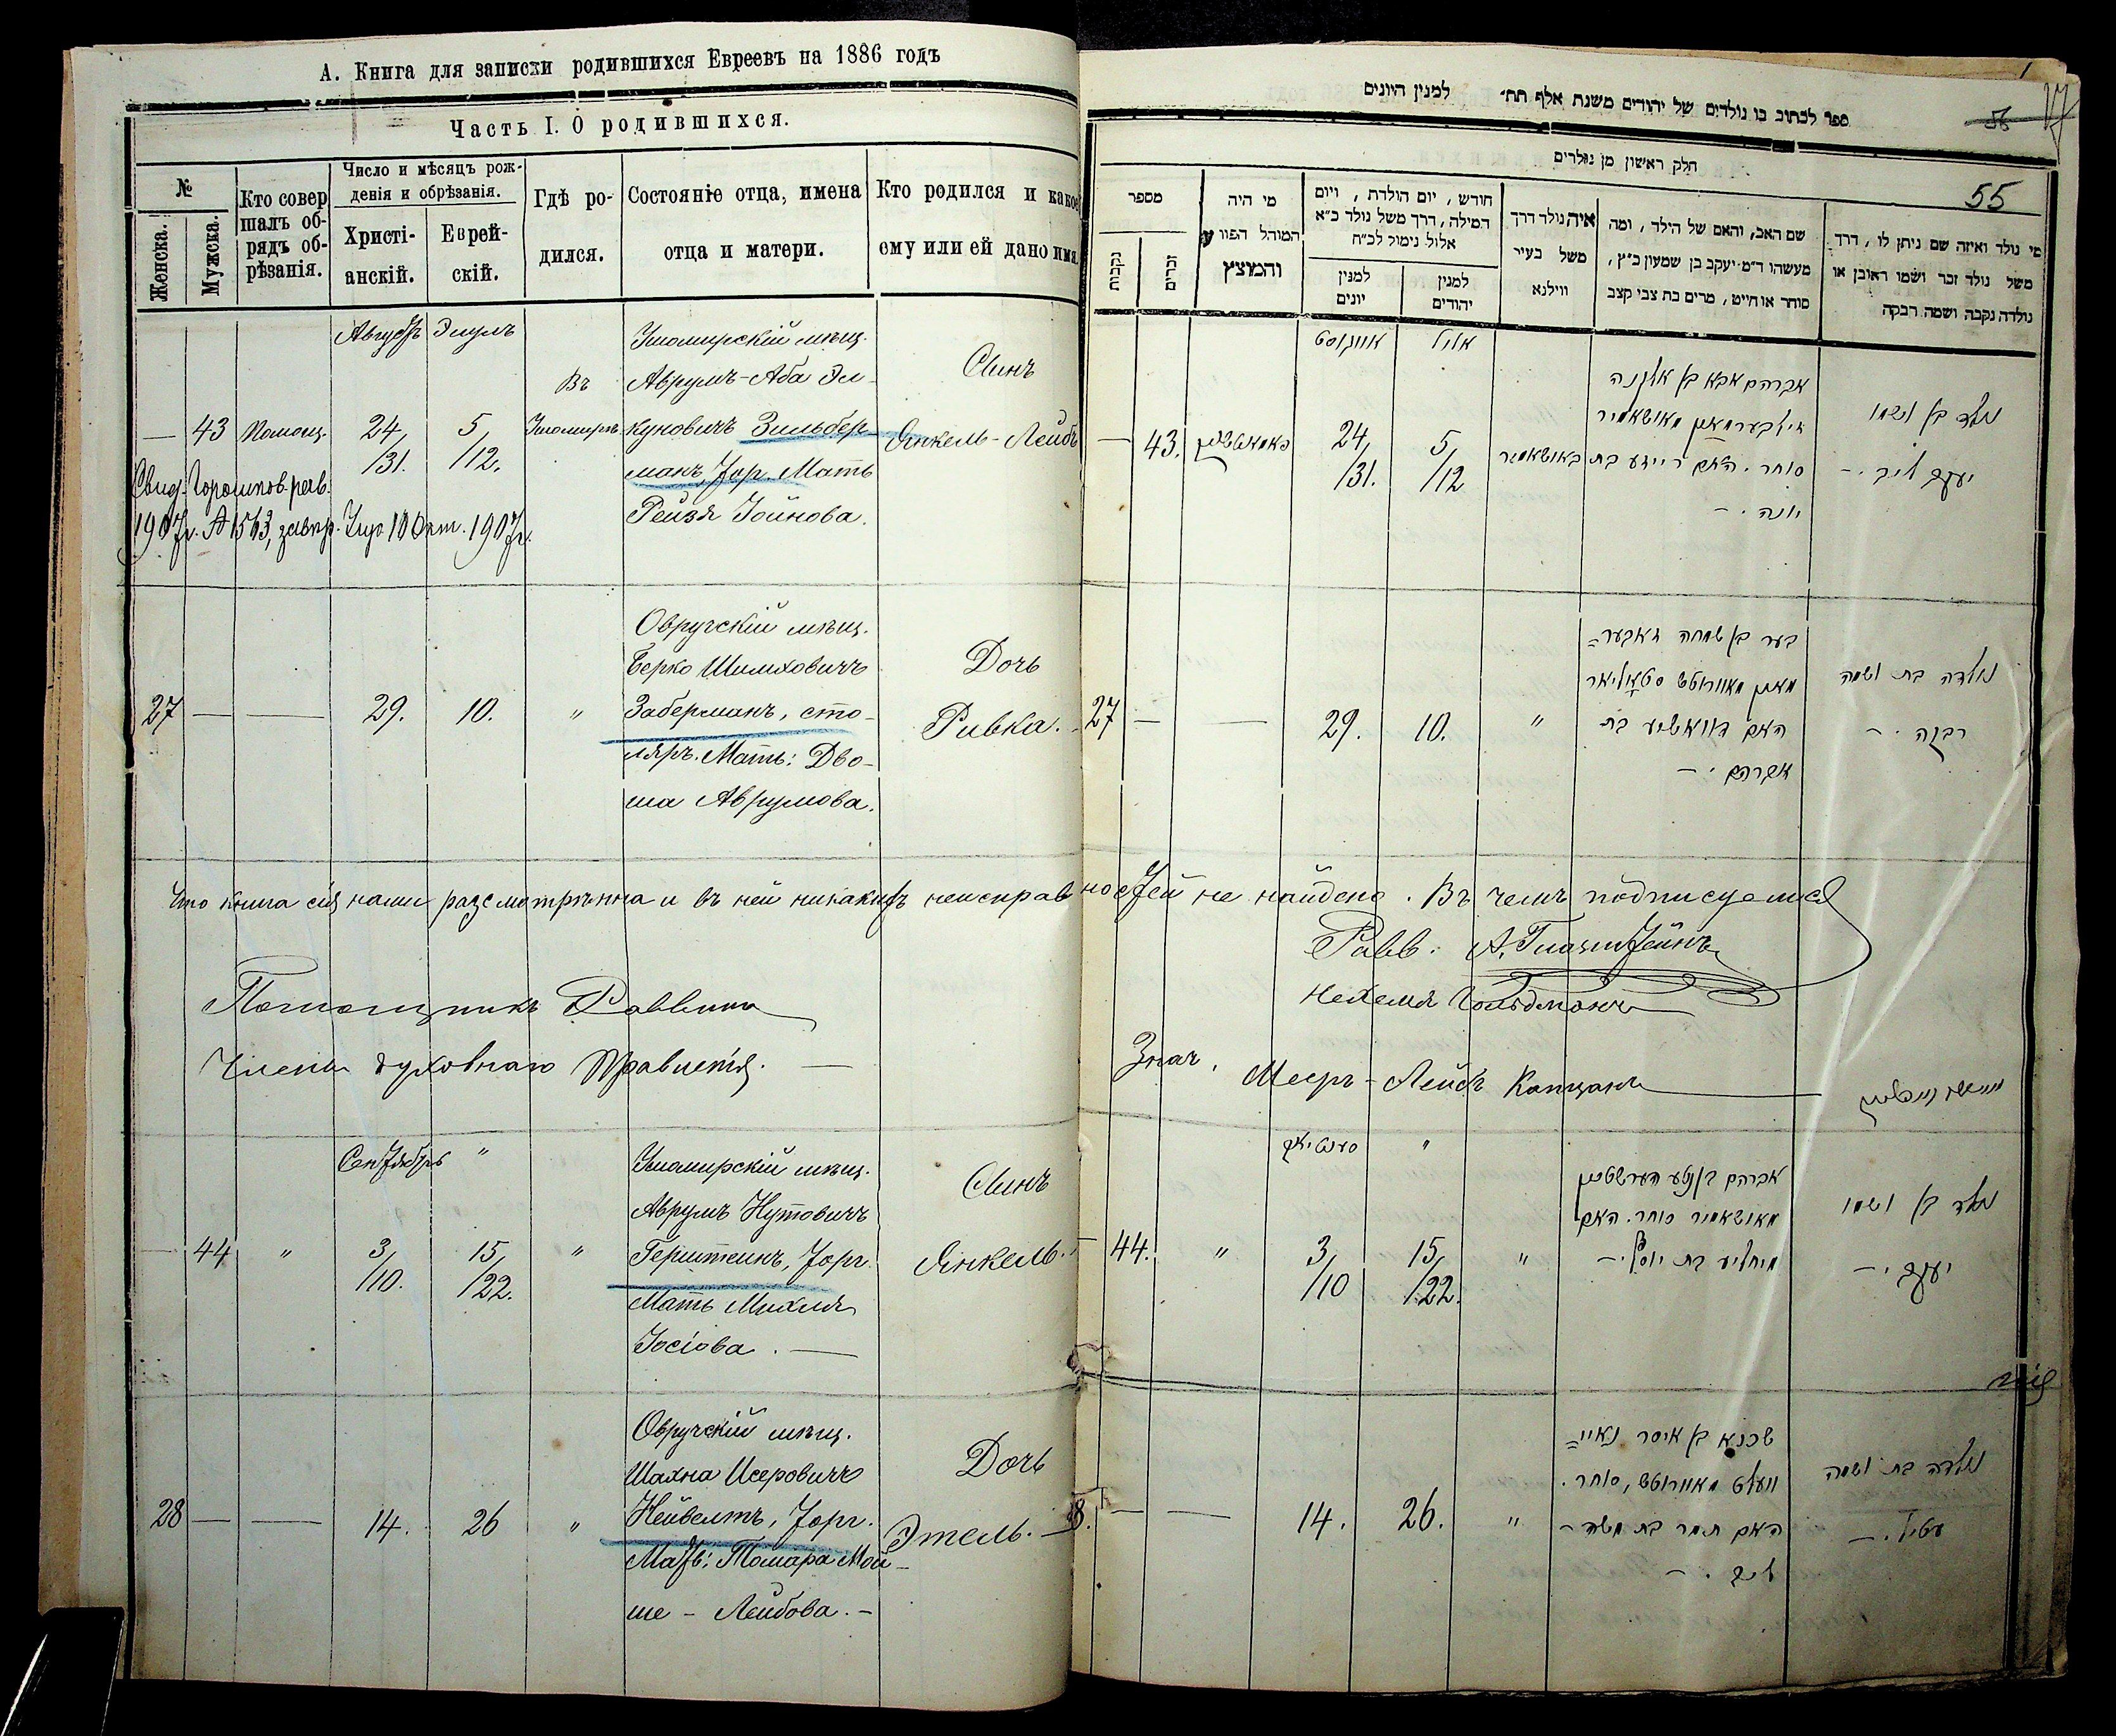 А. Книга для записки родившихся Евреевъ на 1886 годъ
Часть I. О родившихся.
№
Женска.
Мужска.
Кто совер
шалъ об-
рядъ об-
рѣзанія.
Число и мѣсяцъ рож-
денія и обрѣзанія.
Христі-
анскій.
Еврей-
скій.
Гдѣ ро-
дился.
Состояніе отца, имена
отца и матери.
Кто родился и какое
ему или ей дано имя.
Августъ Элулъ
— 43 Помощ. 24/31. 5/12.
Въ
Ушомирскій мѣщ.
Аврумъ-Аба Эл-
куновичъ Зильбер-
манъ, Торг. Мать
Рейзя Іойнова.
Сынъ
Янкель-Лейбъ
1907г. № 1563, 10 Окт. 1907г.
27 — — 29. 10. "
Овручскій мѣщ.
Берко Шимховичъ
Заберманъ, сто-
ляръ. Мать: Дво-
ша Аврумова.
Дочь
Ривка.
Что книга сія нами разсмотрѣнна и въ ней никакихъ неисправностей не найдено. Въ чемъ подписуемся
Равв: А.
Помощникъ Раввина
Нехемя Гольдманъ
Члены духовнаго Правленія. —
Мееръ-Лейбъ Капцанъ
Сентябрь "
44 " 3/10. 15/22. "
Ушомирскій мѣщ.
Аврумъ Нутовичъ
Герштеинъ, Торг.
Мать Михля
Іосіова. —
Сынъ
Янкель.
28 — — 14. 26 "
Овручскій мѣщ.
Шахна Исеровичъ
Нейвелтъ, Торг.
Мать: Томара Мой-
ше - Лейбова. -
Дочь
Этель. —
ספר לכתוב בו נולדים של יהודים משנת אלף תת׳ למנין היונים
55
חלק ראשון מן נולדים
מספר
נקבות
זכרים
מי היה
המוהל הפורע
והמוצץ
חודש, יום הולדת, ויום
המילה, דרך משל נולד כ״א
אלול נימול לכ״ח
למנין
יונים
למנין
יהודים
איה נולד דרך
משל בעיר
ווילנא
שם האב, והאם של הילד, ומה
מעשהו ד״מ יעקב בן שמעון כ״ץ,
סוחר או חייט, מרים בת צבי קצב
מי נולד ואיזה שם ניתן לו, דרך
משל נולד זכר ושמו ראובן או
נולדה נקבה ושמה רבקה
אווגוסט אלול
— 43. 24/31. 5/12
אברהם אבא בן אלקנה
זילבערמאן מאושאמיר
סוחר. האם רייזע בת
יונה. –
נולד בן ושמו
יעקב ליב. –
27 — — 29. 10. "
בער בן שמחה זאבער=
מאן מאוורוטש סטאליאר
האם דוואשיע בת
אברהם. –
נולדה בת ושמה
רבקה. –
"
44. " 3/10 15/22. "
אברהם בן נטע הערשטיין
מאושאמיר סוחר. האם
מיחליע בת יוסף. –
נולד בן ושמו
יעקב. –
8. — — 14. 26. "
שכנא בן איסר נאיי=
וועלט מאוורוטש, סוחר.
האם תמר בת משה -
ליב. –
נולדה בת ושמה
עטיל. –